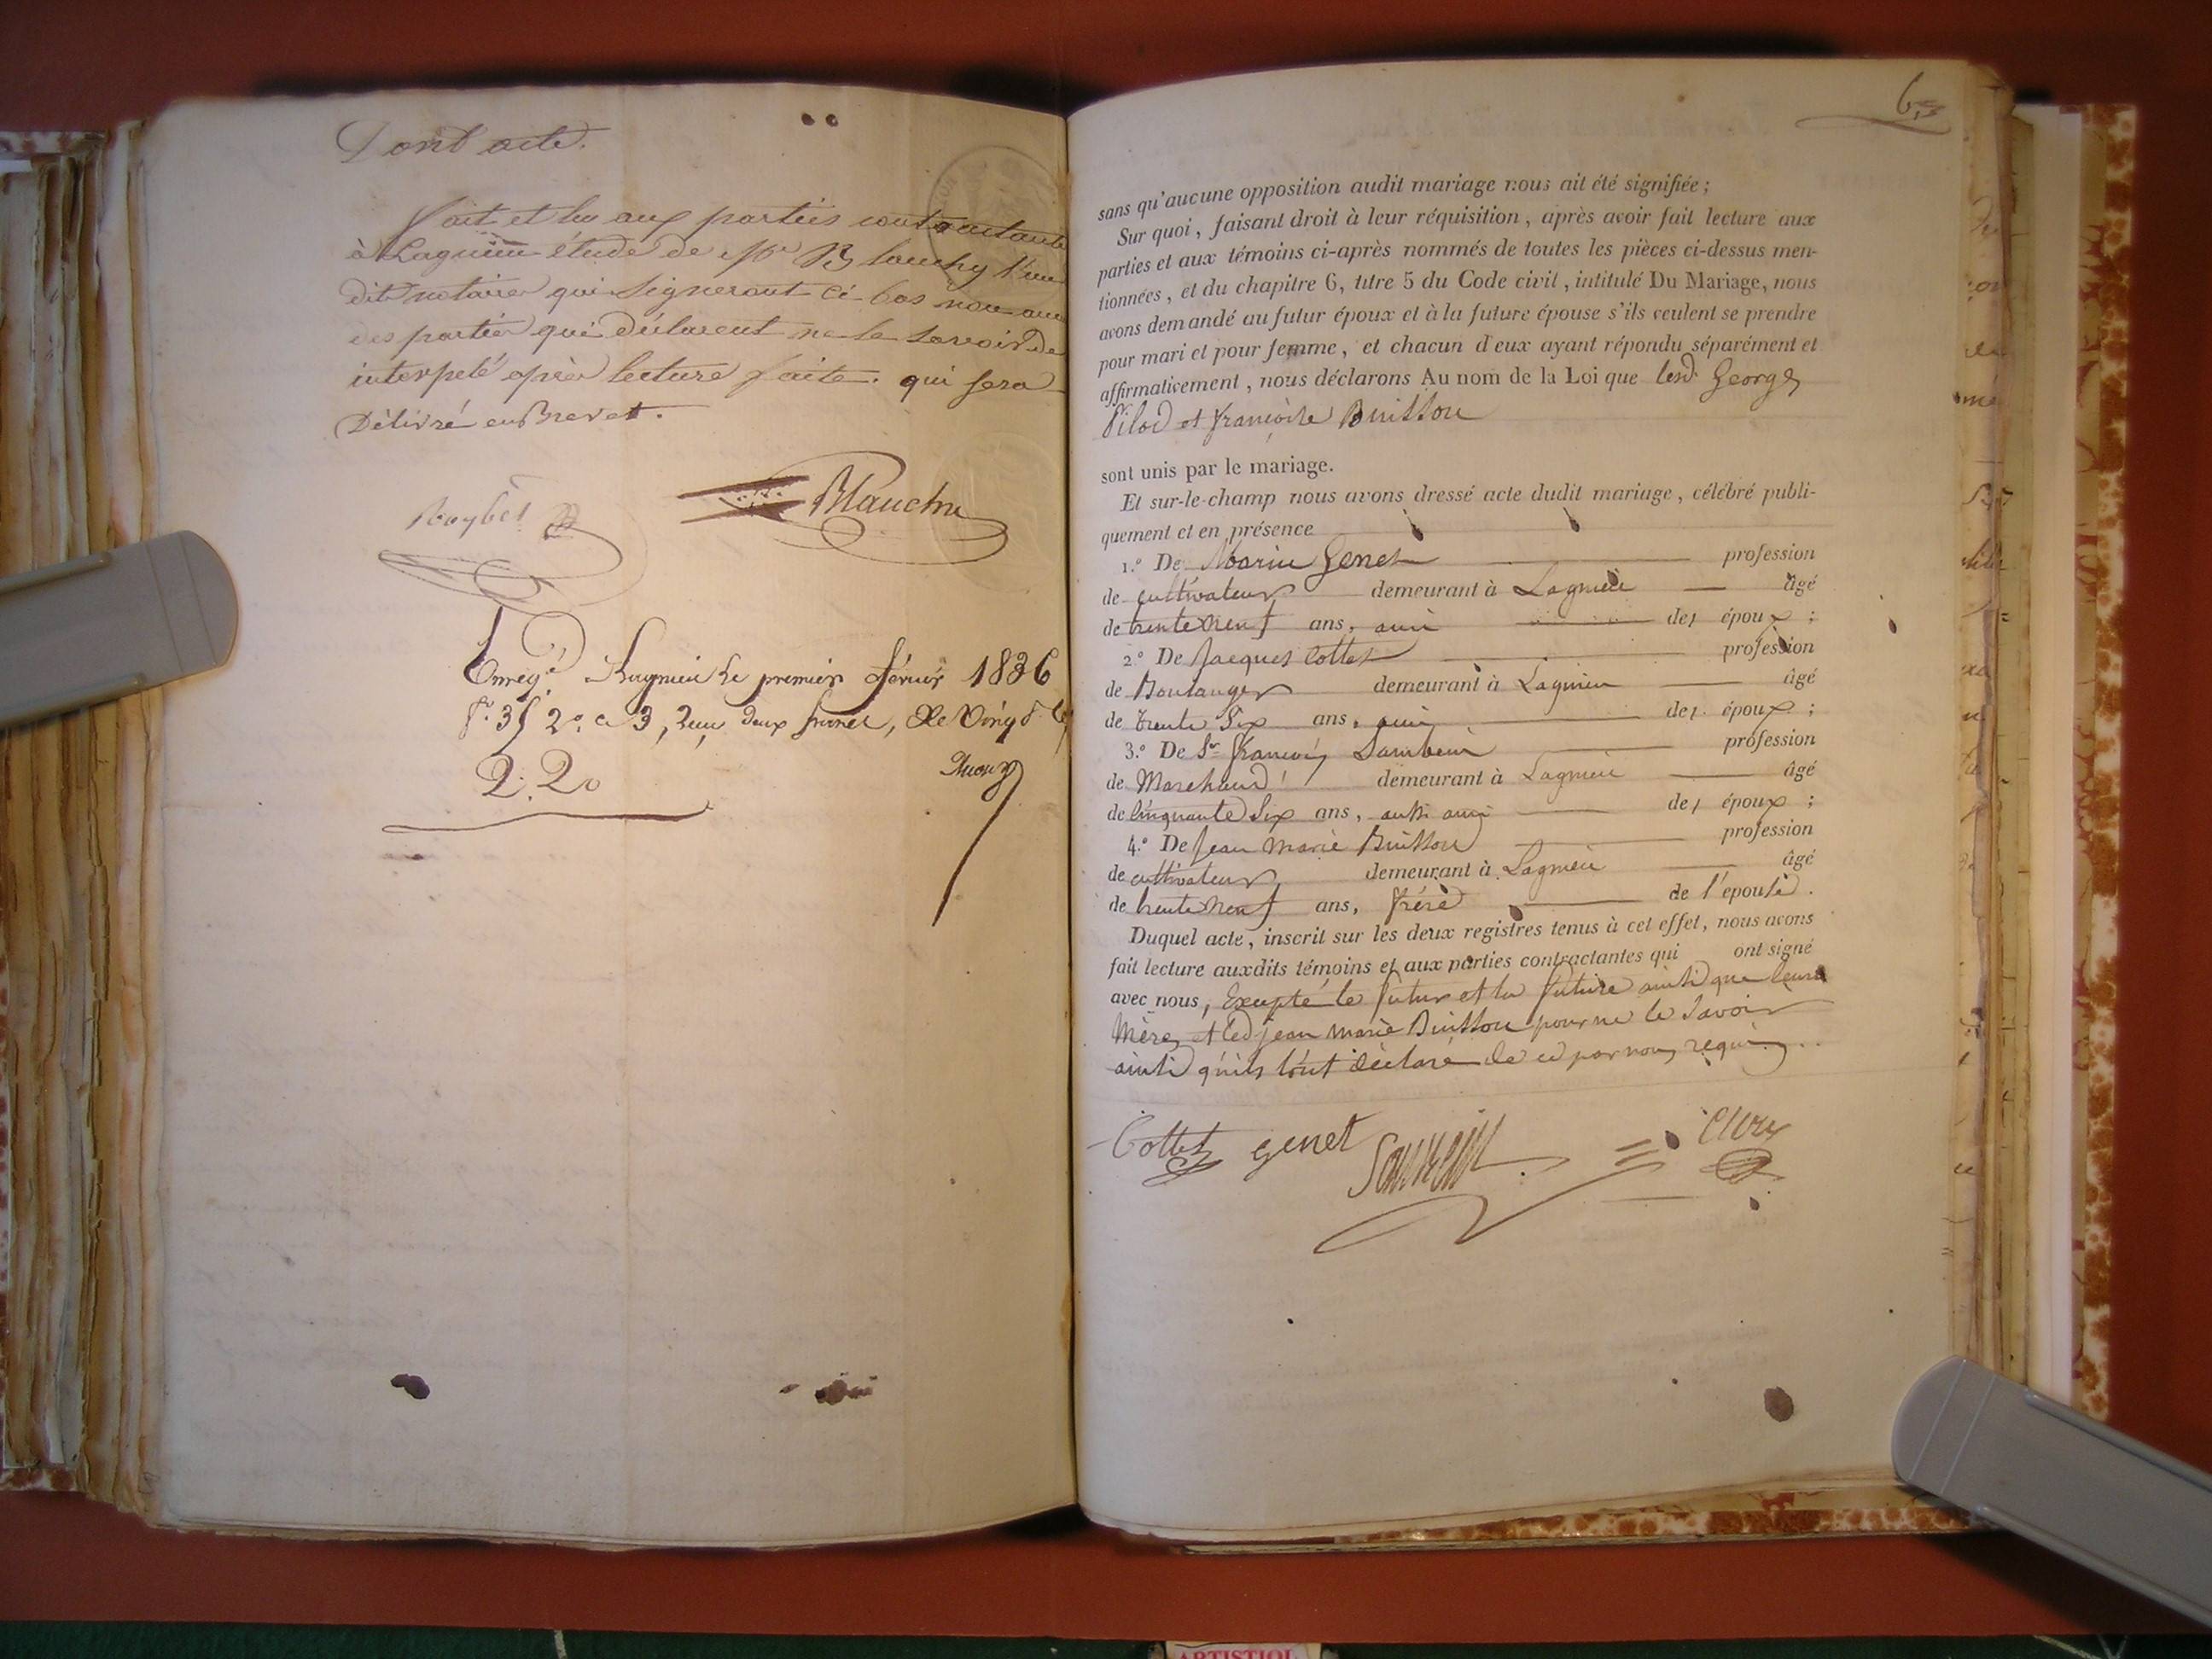 Dont acte.
fait et lu aux parties contractante
à Lagnieu étude de Me Blauchy l'un
dits notaires qui signeront ci bas non aux
des parties qui déclarent ne le savoir de
interpelé après lecture faite. qui sera
Délivré en Brevet.
Roybet
Blauchy
Enregé Lagnieu le premier février 1836
fo 35 2o c 3, Reçu deux francs, Xe vingt
2. 20
6
sans qu'aucune opposition audit mariage nous ait été signifiée;
Sur quoi, faisant droit à leur réquisition, après avoir fait lecture aux
parties et aux témoins ci-après nommés de toutes les pièces ci-dessus men-
tionnées, et du chapitre 6, titre 5 du Code civil, intitulé Du Mariage, nous
avons demandé au futur époux et à la future épouse s'ils veulent se prendre
pour mari et pour femme, et chacun d'eux ayant répondu séparément et
affirmativement, nous déclarons Au nom de la Loi que lesd. George
Pilod et françoise Buisson
sont unis par le mariage.
Et sur-le-champ nous avons dressé acte dudit mariage, célébré publi-
quement et en présence
1.º De Marin Genet profession
de cultivateur demeurant à Lagnieu âgé
de trente neuf ans, ami des époux;
2.º De Jacques Cottet profession
de Boulanger demeurant à Lagnieu âgé
de trente six ans, ami des époux;
3.º De Sr françois profession
de Marchand demeurant à Lagnieu âgé
de cinquante six ans, aussi ami des époux;
4.º De jean marie Buisson profession
de cultivateur demeurant à Lagnieu âgé
de trente neuf ans, frère de l'épouse.
Duquel acte, inscrit sur les deux registres tenus à cet effet, nous avons
fait lecture auxdits témoins et aux parties contractantes qui ont signé
avec nous, Excepté le futur et la future ainsi que leurs
Mères et led jean marie Buisson pour ne le savoir
ainsi qu'ils l'ont déclaré de ce par nous requis
Cottet genet